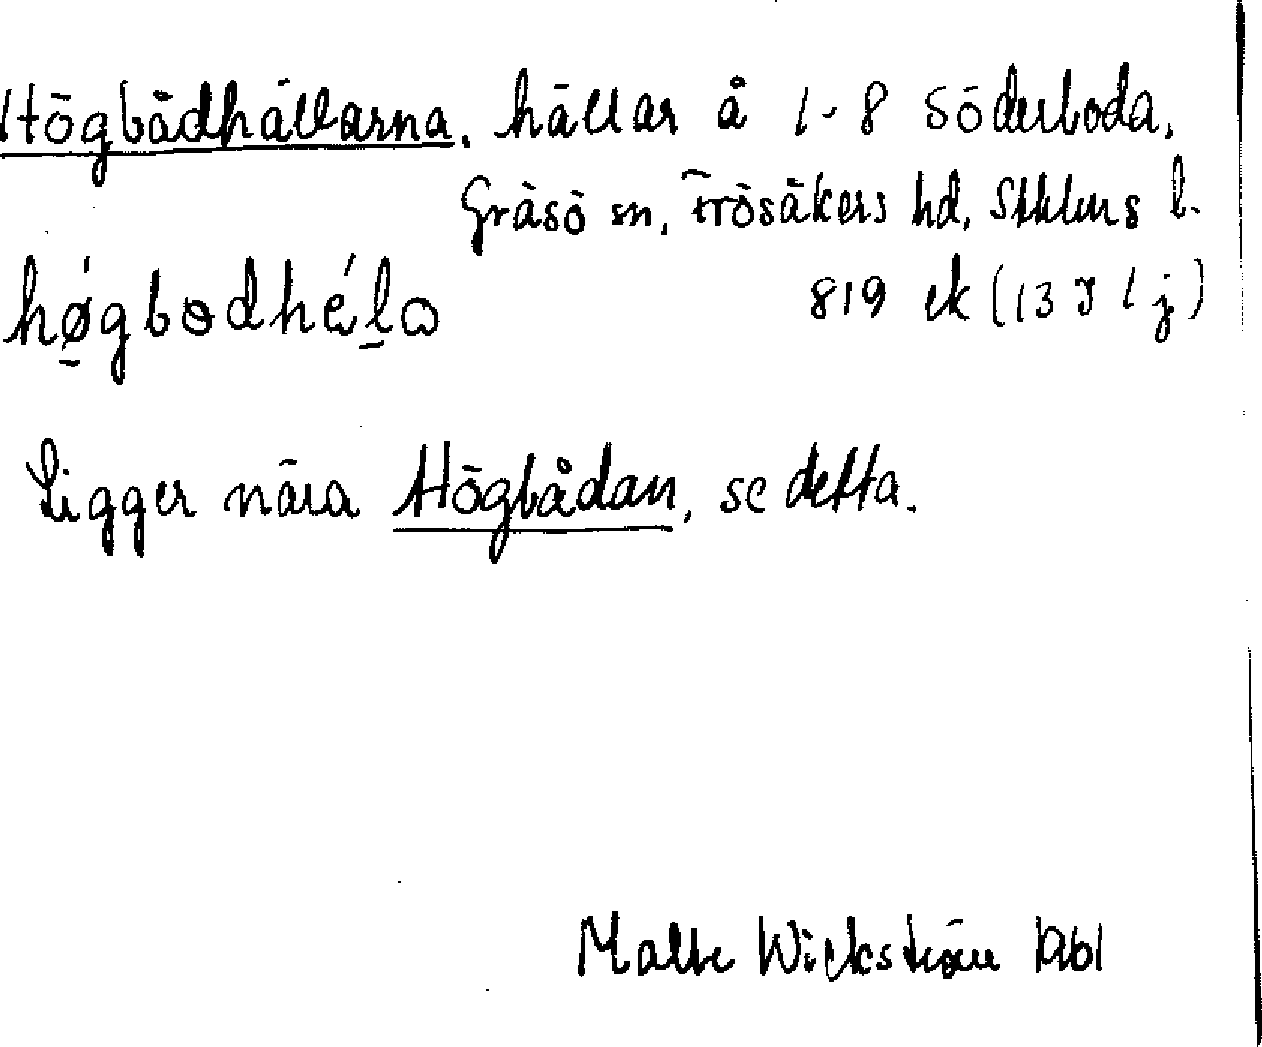 Högbådhällarna, hällar å 1-8 Söderboda,
Gräsö sn, Frösåkers hd, Sthlms l.
høgbodhéla 819 ek (13 I 1 j)
Ligger nära Högbådan, se detta.
Malte Wickström 1961